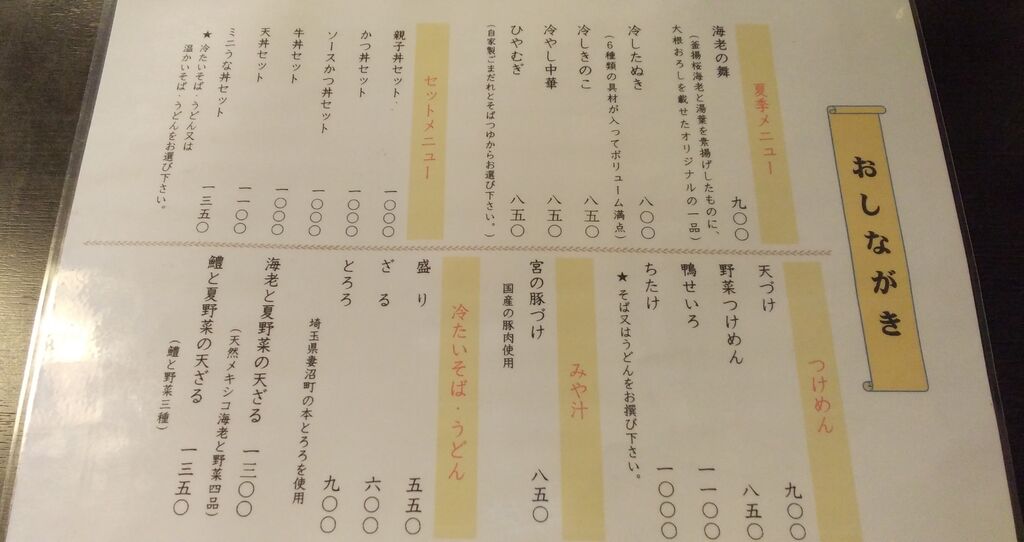 おしながき
夏季メニュー
海老の舞 九〇〇
(釜揚桜海老と湯葉を素揚げしたものに、
大根おろしを載せたオリジナルの一品)
冷したぬき 八〇〇
(6種類の具材が入ってボリューム満点)
冷しきのこ 八五〇
冷やし中華 八五〇
ひやむぎ 八五〇
(自家製ごまだれとそばつゆからお選び下さい。)
セットメニュー
親子丼セット 一〇〇〇
かつ丼セット 一〇〇〇
ソースかつ丼セット 一〇〇〇
牛丼セット 一〇〇〇
天丼セット 一一〇〇
ミニうな丼セット 一三五〇
★冷たいそば・うどん又は
温かいそば・うどんをお選び下さい。
つけめん
天づけ 九〇〇
野菜つけめん 八五〇
鴨せいろ 一一〇〇
ちたけ 一〇〇〇
★そば又はうどんをお撰び下さい。
みや汁
宮の豚づけ 八五〇
国産の豚肉使用
冷たいそば・うどん
盛り 五五〇
ざる 六〇〇
とろろ 九〇〇
埼玉県妻沼町の本とろろを使用
海老と夏野菜の天ざる 一三〇〇
(天然メキシコ海老と野菜四品)
鱧と夏野菜の天ざる 一三五〇
(鱧と野菜三種)